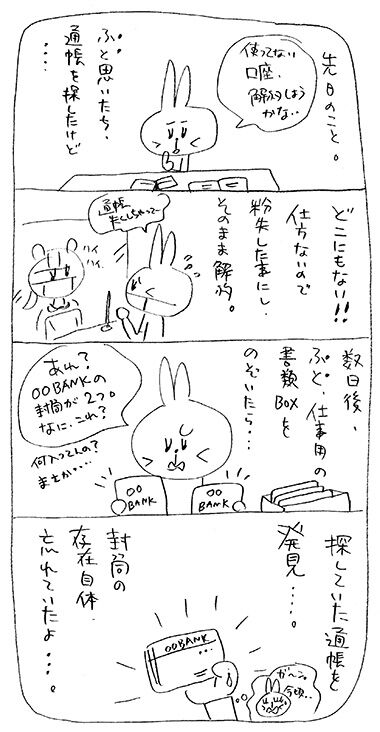 先日のこと。
使ってない
口座、
解約しよう
かな‥
ふと思いたち、
通帳を探したけど
‥‥
どこにもない!!
仕方ないので
紛失した事にし
そのまま解約。
通帳
失くしちゃって‥
ハイ
ハイ
数日後、
ふと、仕事用の
書類BOXを
のぞいたら‥‥
あれ?
○○BANKの
封筒が2つ。
なに、これ?
何入ってんの?
まさか‥‥
○○
BANK
○○
BANK
探していた通帳を
発見‥‥。
封筒の
存在自体
忘れていたよ‥‥。
○○BANK
ガーン。
今頃‥